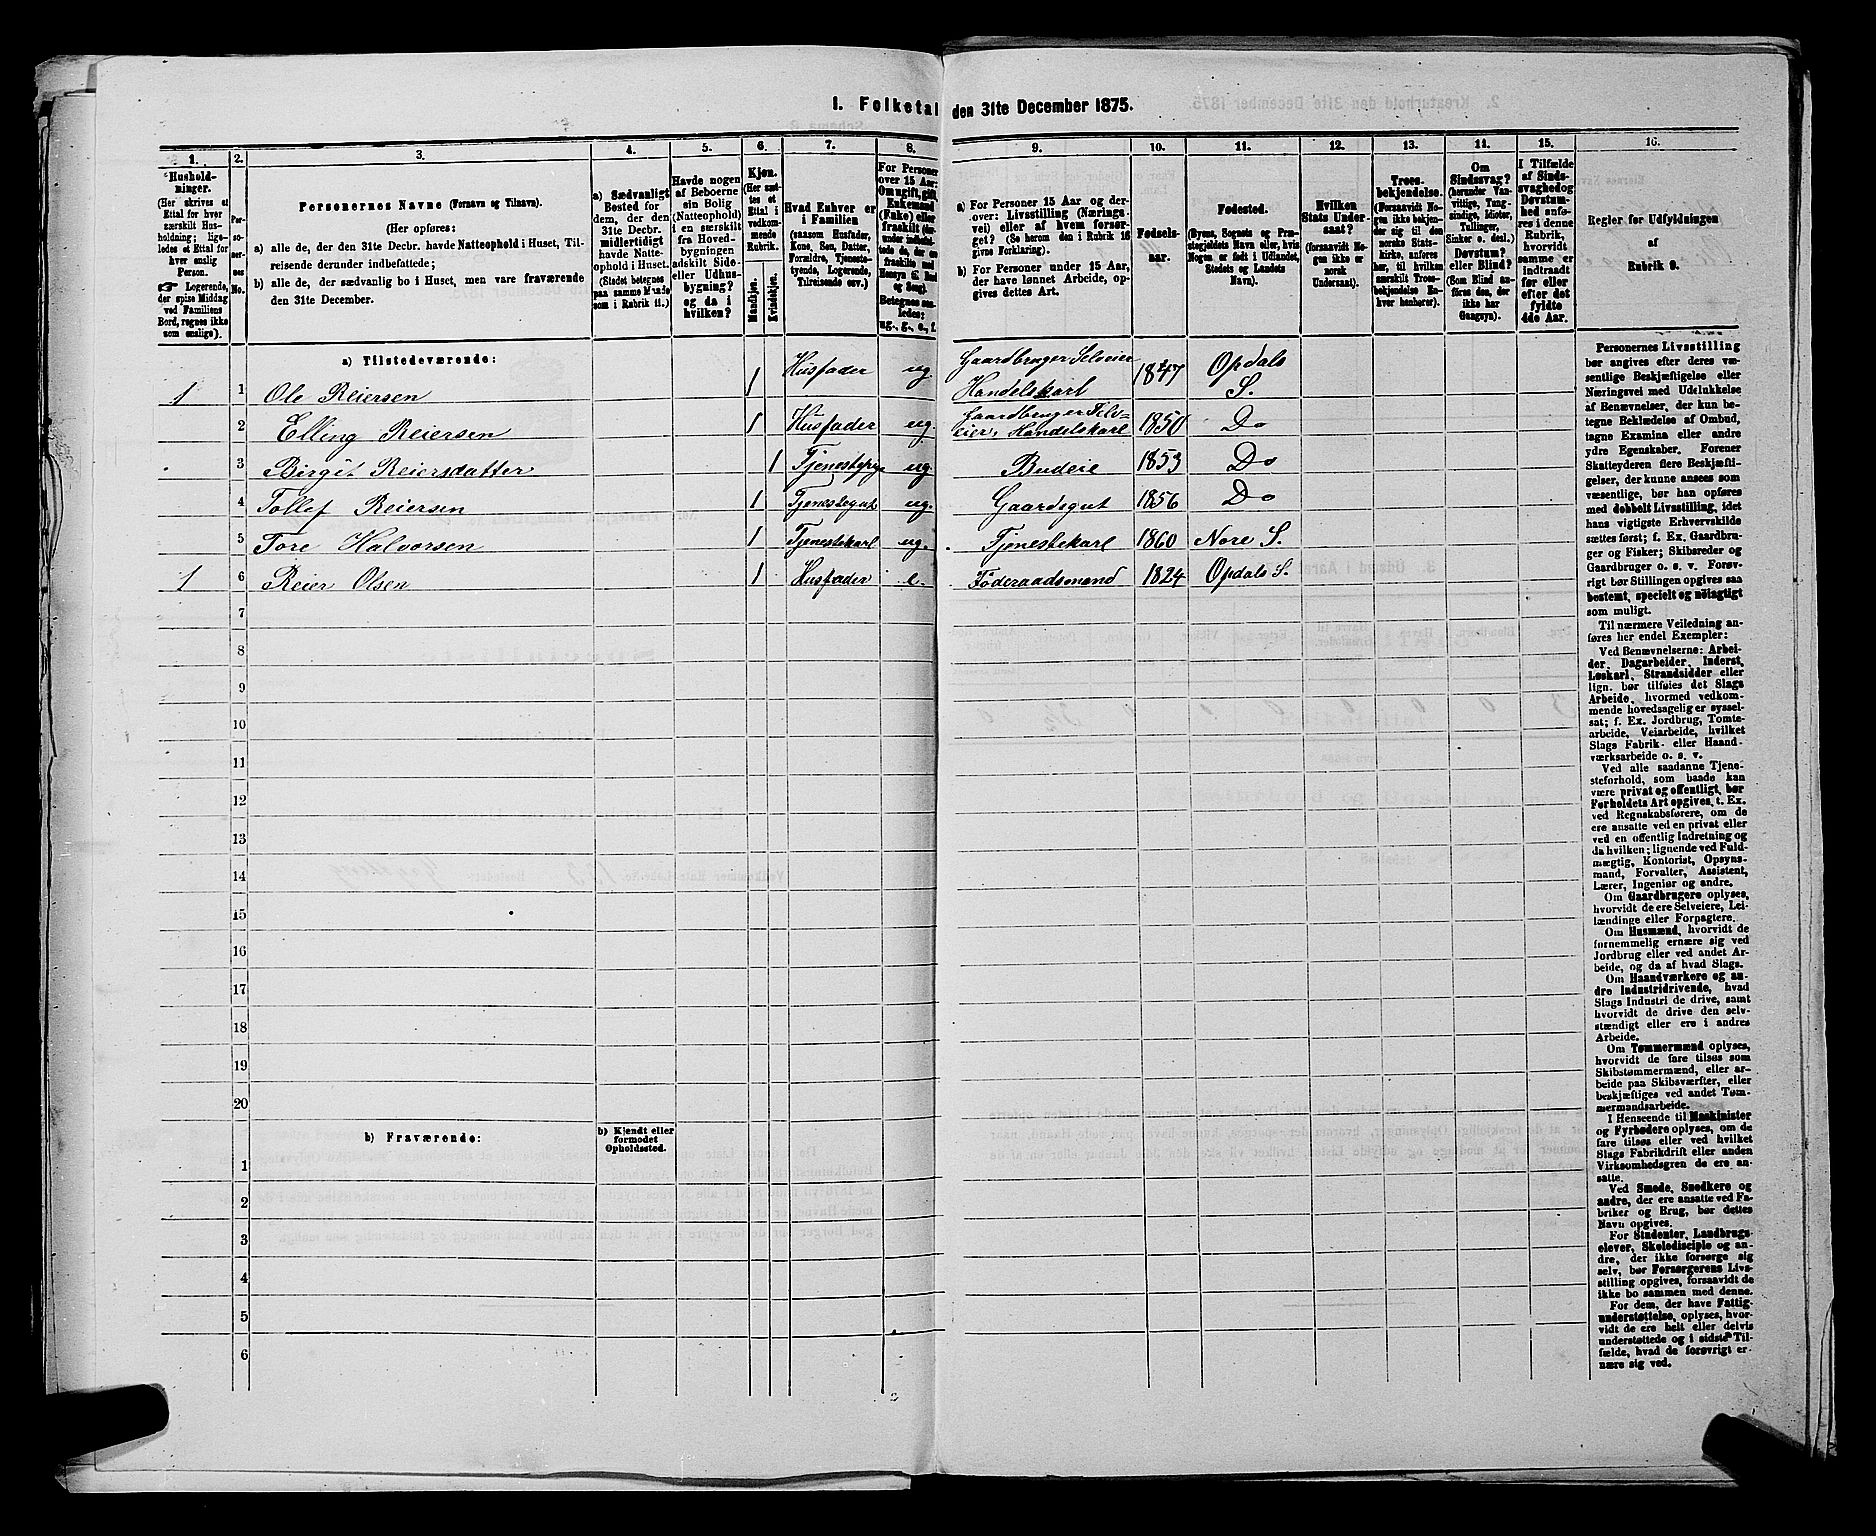 1. Folketal den 31te December 1875.
1.
2.
3.
4.
5.
6.
7.
8.
9.
10.
11.
12.
13.
14.
15.
16.
Husholdninger.
(Her skrives et Ettal for hver særskilt Husholdning; ligeledes et Ettal for hver enslig Person.
☞ Logerende, der spise Middag ved Familiens Bord, regnes ikke som enslige).
Personernes No.
Personernes Navne (Fornavn og Tilnavn).
(Her opføres:
a) alle de, der den 31te Decbr. havde Natteophold i Huset, Tilreisende derunder indbefattede;
b) alle de, der sædvanlig bo i Huset, men vare fraværende den 31te December.
a) Sædvanligt Bosted for dem, der den 31te Decbr. midlertidigt havde Natteophold i Huset. (Stedet betegnes paa samme Maade som i Rubrik 11.)
Havde nogen af Beboerne sin Bolig (Natteophold) i en særskilt fra Hovedbygningen adskilt Side- eller Udhusbygning? og da i hvilken?
Kjøn.
(Her sættes et Ettal i vedkommende Rubrik.
Mandkjøn.
Kvindekjøn.
Hvad Enhver er i Familien
(saasom Husfader, Kone, Søn, Datter, Forældre, Tjenestetyende, Logerende, Tilreisende osv.)
For Personer over 15 Aar:
a) For Personer 15 Aar og derover: Livsstilling (Næringsvei) eller af hvem forsørget? (Se herom den i Rubrik 16 givne Forklaring).
b) For Personer under 15 Aar, der have lønnet Arbeide, opgives dettes Art.
Fødselsaar.
Fødested.
(Byens, Sognets og Præstegjeldets Navn eller, hvis Nogen er født i Udlandet, Stedets og Landets Navn).
Hvilken Stats Undersaat?
(forsaavidt Nogen ikke er norsk Undersaat).
Troesbekjendelse.
(Forsaavidt Nogen ikke bekjender sig til den norske Statskirke, anføres her, til hvilken særskilt Troesbekjendelse Enhver henhører).
Om Sindssvag? (herunder Vanvittige, Tungsindige, Idioter, Tullinger, Sinker o. desl.) Døvstum? eller Blind? (Som Blind anføres den, der ikke har Gangsyn).
I Tilfælde af Sindssvaghed og Døvstumhed anføres i denne Rubrik, hvorvidt samme er indtraadt før eller efter det fyldte 4de Aar.
Regler for Udfyldningen
af
Rubrik 9.
a) Tilstedeværende:
1 1 Ole Reiersen 1 Husfader ug Gaardbruger Selveier Handelskarl 1847 Opdals S.
2 Elling Reiersen 1 Husfader ug. Gaardbruger Selveier, Handelskarl 1850 Do
3 Birgit Reiersdatter 1 Tjenestepige ug. Budeie 1853 Do
4 Tollef Reiersen 1 Tjenestegut ug. Gaardsgut 1856 Do
5 Tore Halvorsen 1 Tjenestekarl ug. Tjenestekarl 1860 Nore S.
1 6 Reier Olsen 1 Husfader e. Föderaadsmand 1824 Opdals S.
7
8
9
10
11
12
13
14
15
16
17
18
19
20
b) Fraværende:
b) Kjendt eller formodet Opholdssted.
1
2
3
4
5
6
Personernes Livsstilling
bør angives efter deres væ-
sentlige Beskjæftigelse eller
Næringsvei med Udelukkelse
af Benævnelser, der kun be-
tegne Beklædelse af Ombud,
tagne Examina eller andre
ydre Egenskaber. Forener
Skatteyderen flere Beskjæfti-
gelser, der kunne ansees som
væsentlige, bør han opføres
med dobbelt Livsstilling, idet
hans vigtigste Erhvervskilde
sættes først; f. Ex. Gaardbru-
ger og Fisker; Skibsreder og
Gaardbruger o. s. v. Forøv-
rigt bør Stillingen opgives saa
bestemt, specielt og nöiagtigt
som muligt.
Til nærmere Veiledning an-
føres her endel Exempler:
Ved Benævnelserne: Arbei-
der, Dagarbeider, Inderst,
Løskarl, Strandsidder eller
lign. bør tilføies det Slags
Arbeide, hvormed vedkom-
mende hovedsagelig er syssel-
sat; f. Ex. Jordbrug, Tomte-
arbeide, Veiarbeide, hvilket
Slags Fabrik- eller Haand-
værksarbeide o. s. v.
Ved alle saadanne Tjene-
steforhold, som baade kan
være privat og offentligt, bør
Forholdets Art opgives, t. Ex.
ved Regnskabsførere, om de
ere ansatte ved en privat eller
ved en offentlig Indretning og
da hvilken; lignende ved Fuld-
mægtig, Kontorist, Opsyns-
mand, Forvalter, Assistent,
Lærer, Ingeniør og andre.
Om Gaardbrugere oplyses,
hvorvidt de ere Selveiere, Lei-
lændinge eller Forpagtere.
Om Husmænd, hvorvidt de
fornemmelig ernære sig ved
Jordbrug eller ved andet Ar-
beide, og da af hvad Slags.
Om Haandværkere og an-
dre Industridrivende, hvad
Slags Industri de drive, samt
hvorvidt de drive den selv-
stændigt eller ere i andres
Arbeide.
Om Tømmermænd oplyses,
hvorvidt de fare tilsøs som
Skibstømmermænd, eller ar-
beide paa Skibsværfter, eller
beskjæftiges ved andet Tøm-
mermandsarbeide.
I Henseende til Maskinister
og Fyrbødere oplyses, om de
fare tilsøs eller ved hvilket
Slags Fabrikdrift eller anden
Virksomhedsgren de ere an-
satte.
Ved Smede, Snedkere og
andre, der ere ansatte ved Fa-
briker og Brug, bør dettes
Navn opgives.
For Studenter, Landbrugs-
elever, Skoledisciple og an-
dre, der ikke forsørge sig
selv, bør Forsørgerens Livs-
stilling opgives, forsaavidt de
ikke bo sammen med denne.
For dem, der have Fattig-
understøttelse, oplyses, hvor-
vidt de ere helt eller delvis
understøttede og i sidste Til-
fælde, hvad de forøvrigt er-
nære sig ved.